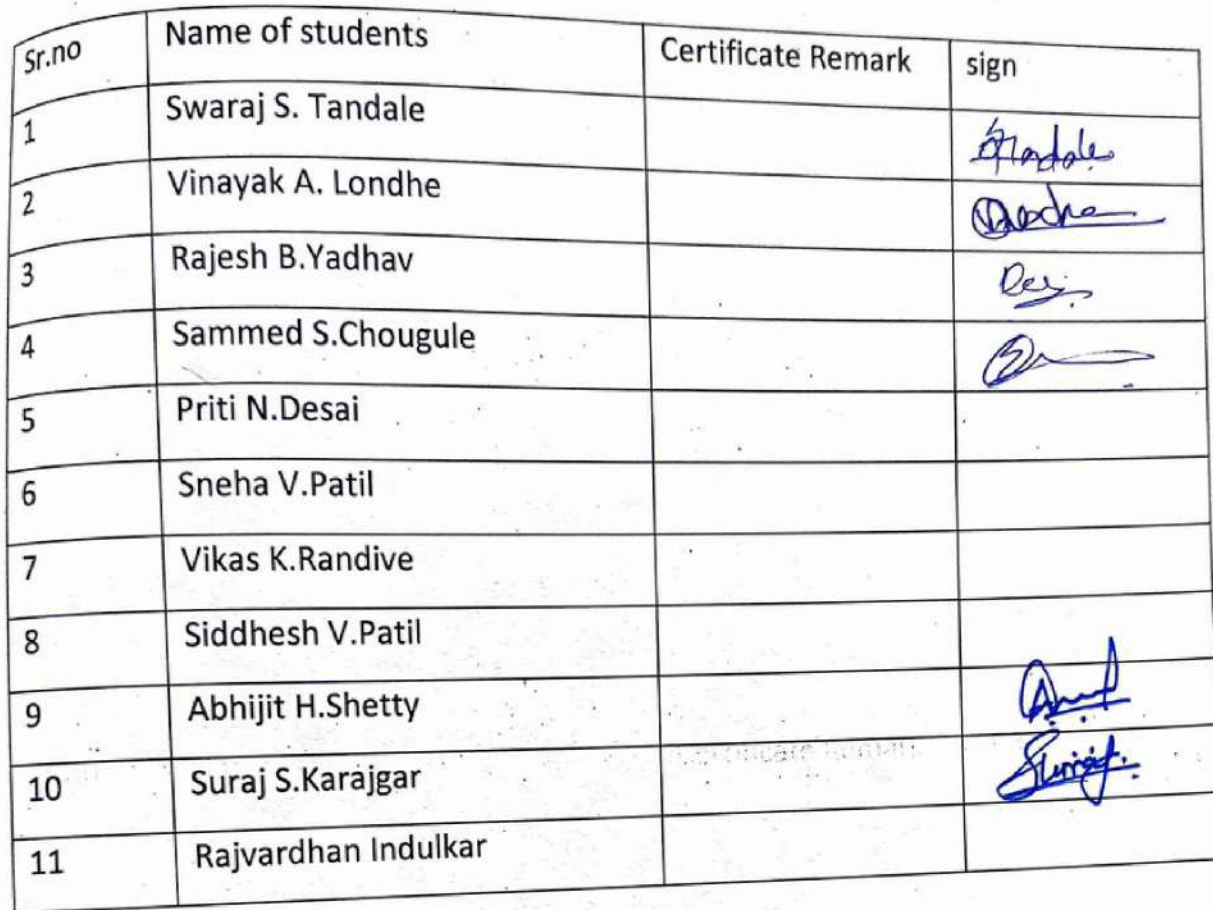 Sr.no Name of students Certificate Remark sign
1 Swaraj S. Tandale
2 Vinayak A. Londhe
3 Rajesh B.Yadhav
4 Sammed S.Chougule
5 Priti N.Desai
6 Sneha V.Patil
7 Vikas K.Randive
8 Siddhesh V.Patil
9 Abhijit H.Shetty
10 Suraj S.Karajgar
11 Rajvardhan Indulkar